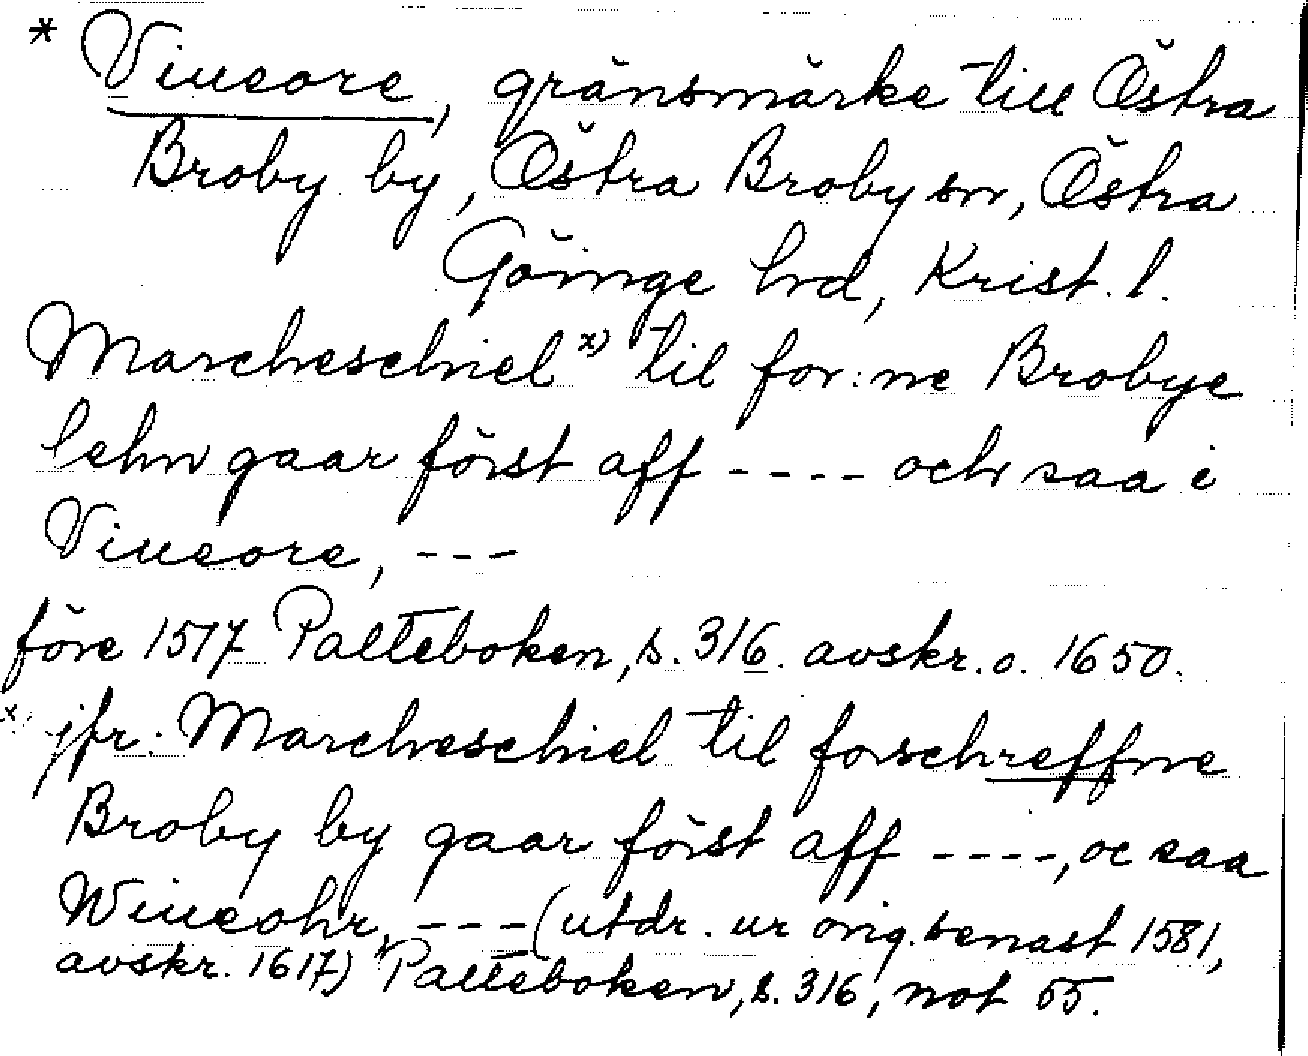 * Viueore, gränsmärke till Östra
Broby by, Östra Broby sn, Östra
Göinge hrd, Krist. l.
Marcheschiel x) til for:ne Brobye
lehn gaar först aff ---- och saa i
Viueore, ---
före 1517 Palteboken, s. 316. avskr. o. 1650.
x. jfr. Marcheschiel til forschreffne
Broby by gaar först aff ----, oc saa
Wiueohr, --- (utdr. ur orig. senast 1581,
avskr. 1617) Palteboken, s. 316, not 55.